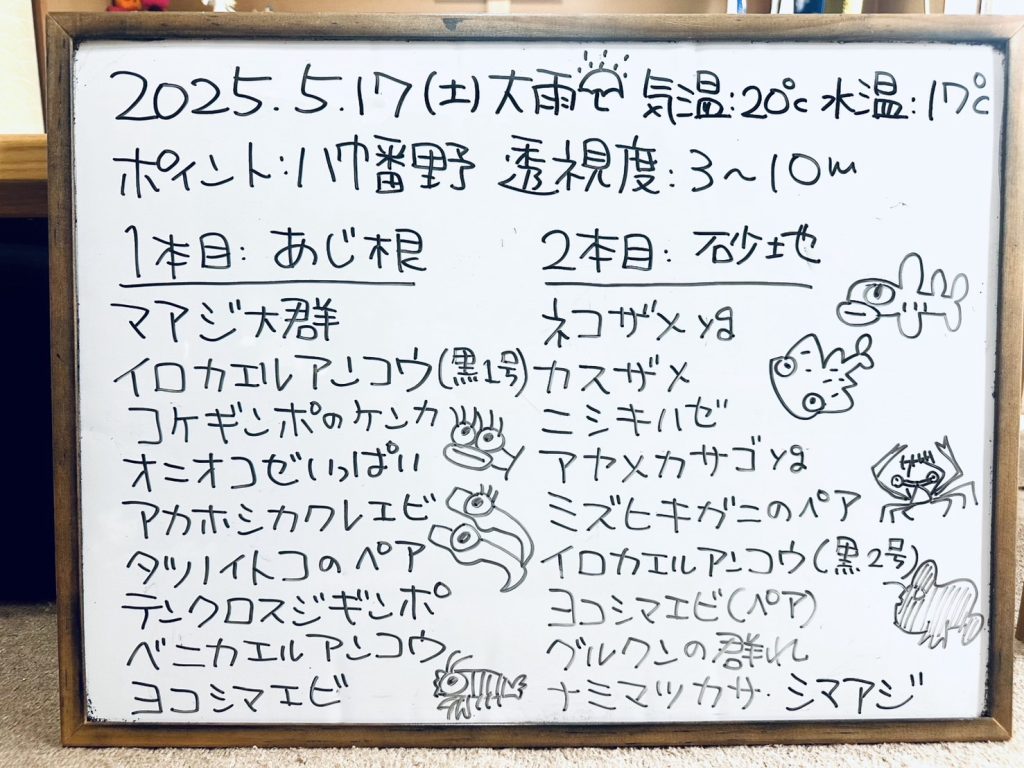 2025.5.17(土)大雨 気温:20℃ 水温:17℃
ポイント:八幡野 透視度:3~10m
1本目:あじ根
マアジ大群
イロカエルアンコウ(黒1号)
コケギンポのケンカ
オニオコゼいっぱい
アカホシカクレエビ
タツノイトコのペア
テンクロスジギンポ
ベニカエルアンコウ
ヨコシマエビ
2本目:砂地
ネコザメyg
カスザメ
ニシキハゼ
アヤメカサゴyg
ミズヒキガニのペア
イロカエルアンコウ(黒2号)
ヨコシマエビ(ペア)
グルクンの群れ
ナミマツカサ・シマアジ